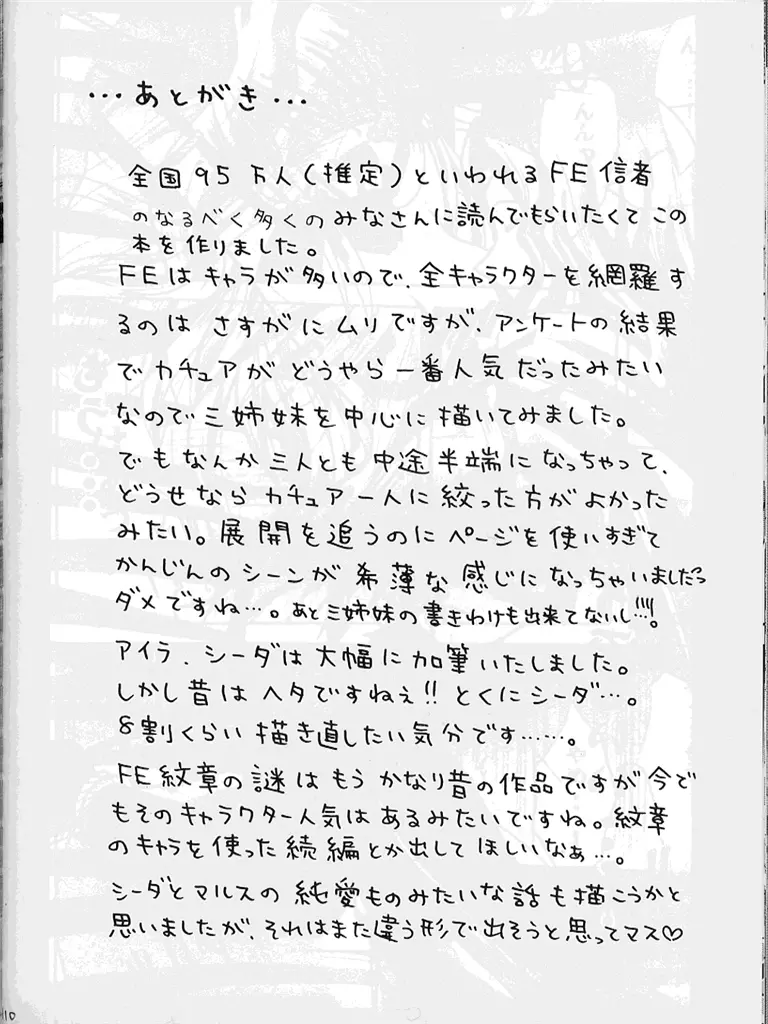 …あとがき…
全国95万人(推定)といわれるFE信者
のなるべく多くのみなさんに読んでもらいたくてこの
本を作りました。
FEはキャラが多いので、全キャラクターを網羅す
るのはさすがにムリですが、アンケートの結果
でカチュアがどうやら一番人気だったみたい
なので三姉妹を中心に描いてみました。
でもなんか三人とも中途半端になっちゃって、
どうせならカチュア一人に絞った方がよかった
みたい。展開を追うのにページを使いすぎて
かんじんのシーンが希薄な感じになっちゃいましたっ
ダメですね…。あと三姉妹の書きわけも出来てないし…!!!。
アイラ、シーダは大幅に加筆いたしました。
しかし昔はヘタですねぇ!!とくにシーダ…。
8割くらい描き直したい気分です……。
FE紋章の謎はもうかなり昔の作品ですが今で
もそのキャラクター人気はあるみたいですね。紋章
のキャラを使った続編とか出してほしいなぁ…。
シーダとマルスの純愛ものみたいな話も描こうかと
思いましたが、それはまた違う形で出そうと思ってマス♡
10